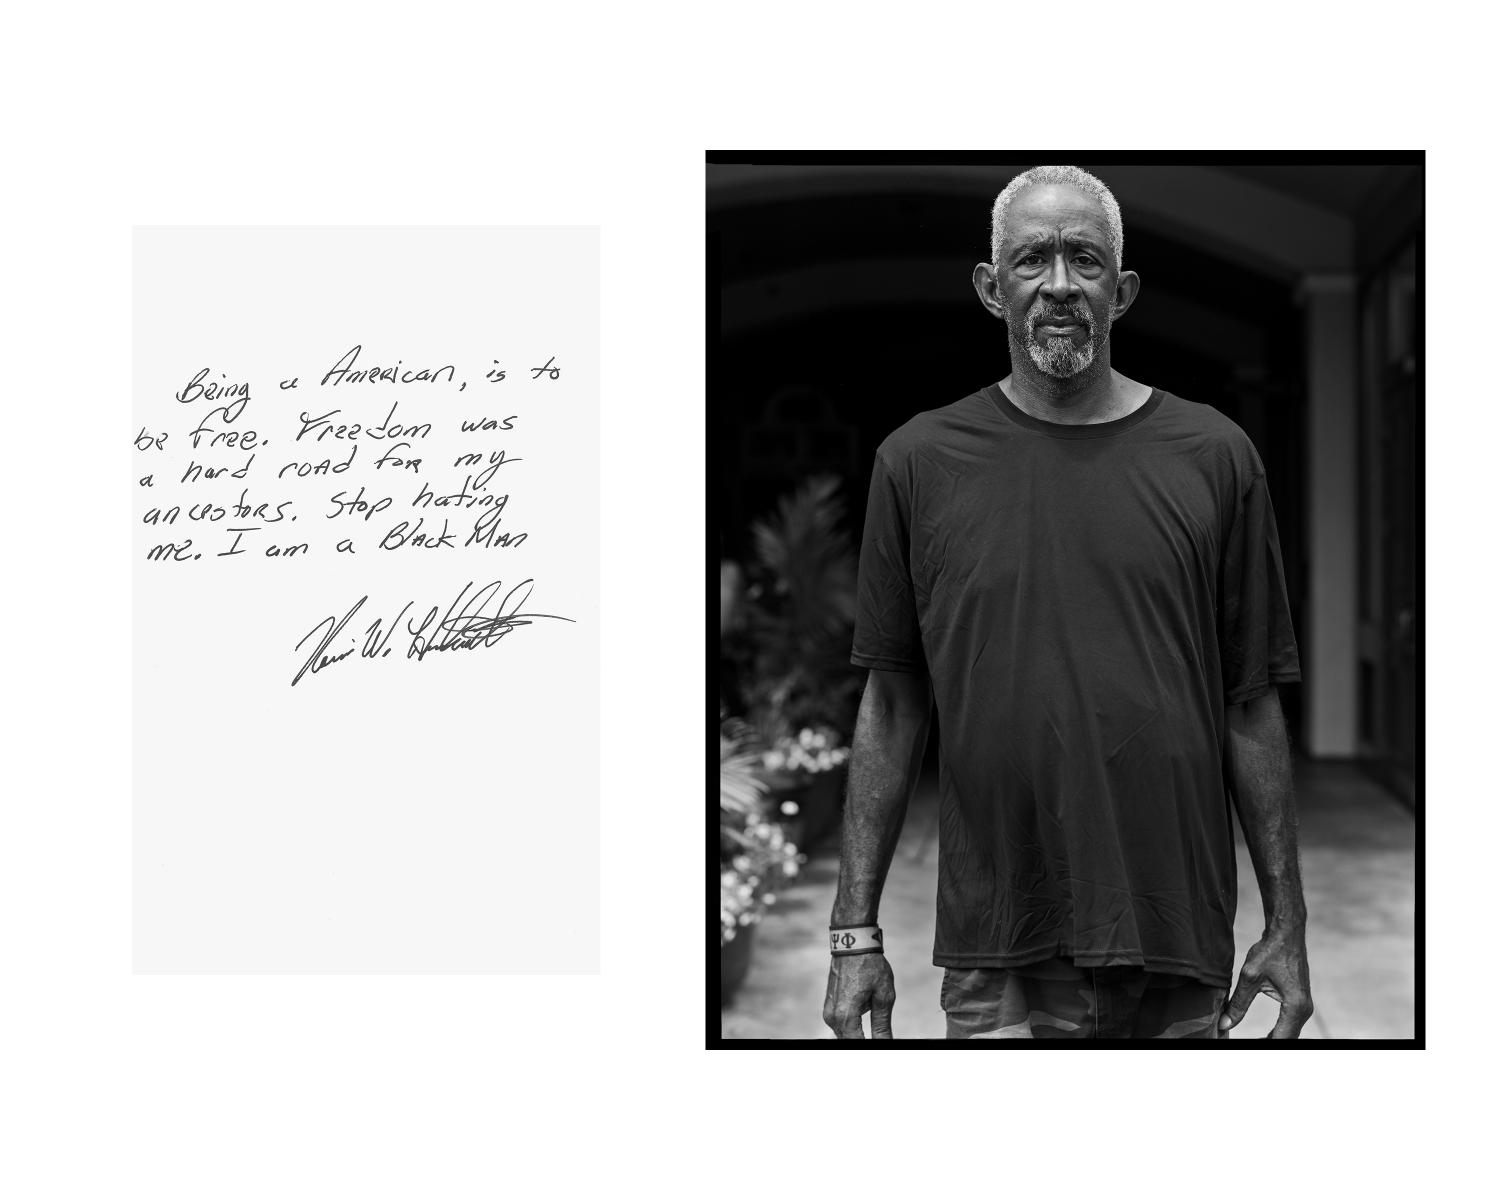 Being a American, is to
be free. Freedom was
a hard road for my
ancestors. Stop hating
me. I am a Black Man
W.
ΨΦ